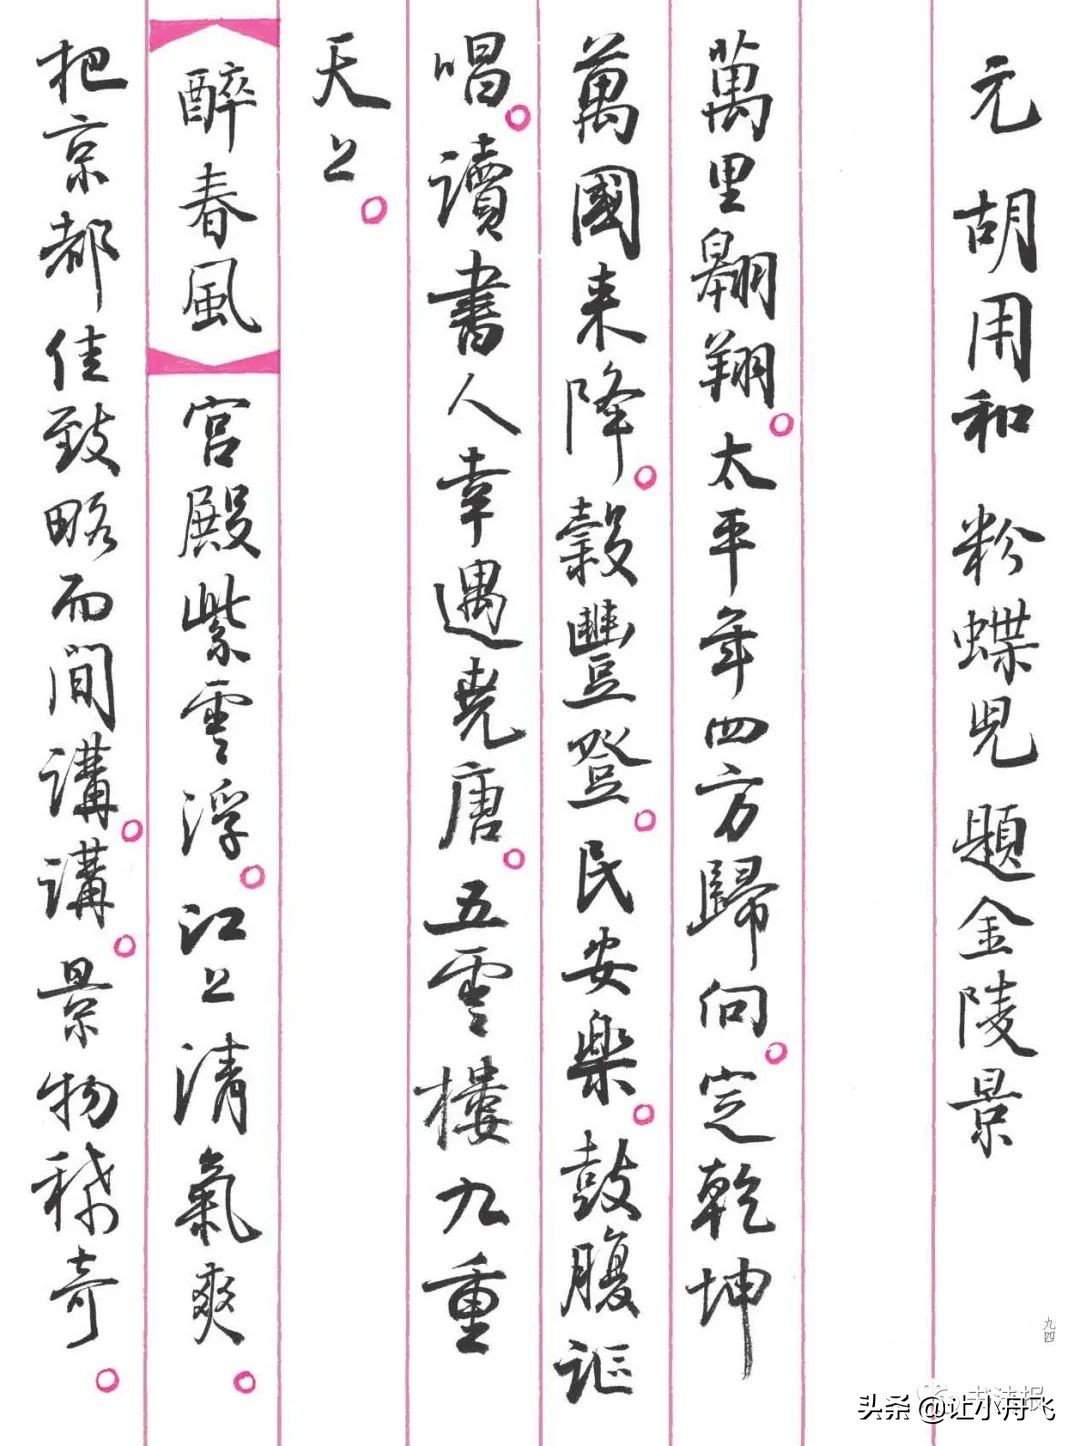 元 胡用和 粉蝶兒 題金陵景
萬里翱翔。太平年四方歸向。定乾坤
萬國来降。穀豐登。民安樂。鼓腹謳
唱。讀書人幸遇堯唐。五雲樓九重
天上。
醉春風 宫殿紫雲浮。江上清氣爽。
把京都佳致略而間講。講。景物稀奇。
九四
书法报
头条 @让小舟飞